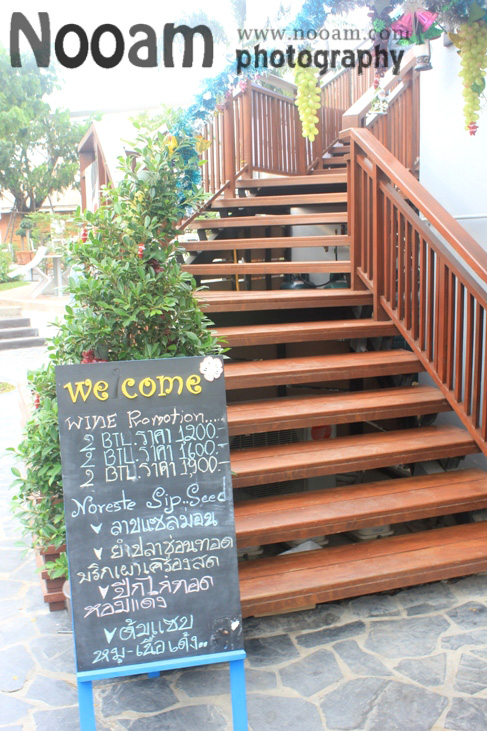 Nooam
www.nooam.com
photography
We come
WINE Promotion....
2 BTL ราคา 1200.-
2 BTL ราคา 1600.-
2 BTL ราคา 1900.-
Noreste Sip..Seed
ลาบแซลมอน
ยำปลาช่อนทอด
พริกเผาเครื่องสด
ปีกไก่ทอด
หอมแดง
ต้มแซบ
หมู-เนื้อเด้ง..